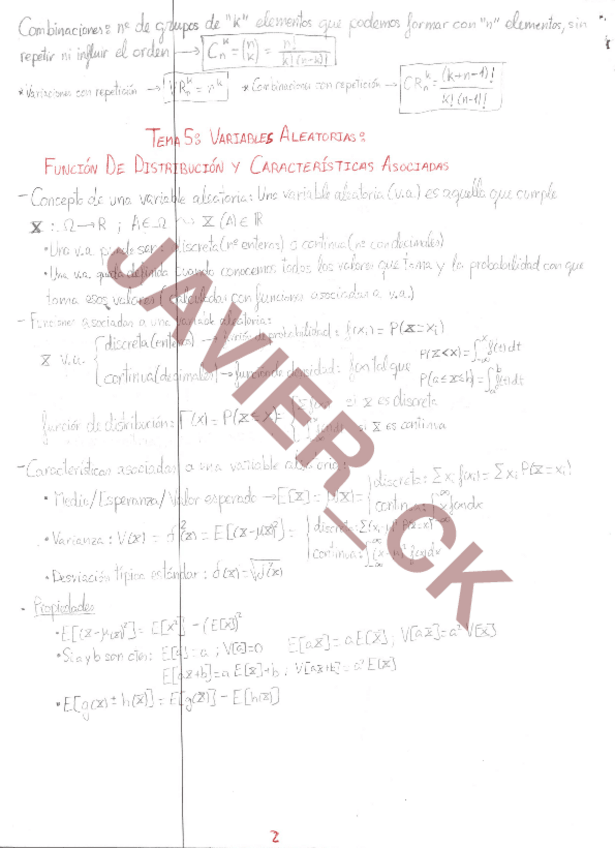 Combinaciones: nº de grupos de "k" elementos que podemos formar con "n" elementos, sin
repetir ni influir el orden → C_n^k = (n k) = n! / k!(n-k)!
* Variaciones con repetición → VR_n^k = n^k * Combinaciones con repetición → CR_n^k = (k+n-1)! / k!(n-1)!
TEMA 5: VARIABLES ALEATORIAS:
FUNCIÓN DE DISTRIBUCIÓN Y CARACTERÍSTICAS ASOCIADAS
- Concepto de una variable aleatoria: Una variable aleatoria (v.a.) es aquella que cumple
X : Ω → R ; A ∈ Ω ↝ X(A) ∈ R
• Una v.a. puede ser: discreta (nº enteros) o continua (nº con decimales)
• Una v.a. queda definida cuando conocemos todos los valores que toma y la probabilidad con que
toma esos valores (calculadas con funciones asociadas a v.a.)
- Funciones asociadas a una variable aleatoria:
X v.a. discreta (enteros) → función de probabilidad: f(x_i) = P(X = x_i)
continua (decimales) → función de densidad: f con tal que P(X<x) = ∫_{-∞}^x f(t)dt
P(a≤x≤b) = ∫_a^b f(t)dt
función de distribución: F(x) = P(X≤x) = si X es discreta
si X es continua
- Características asociadas a una variable aleatoria:
• Media/Esperanza/Valor esperado → E[X] = μ(x) = discreta: Σ x_i f(x_i) = Σ x_i P(X = x_i)
continua: ∫ x f(x)dx
• Varianza: V(x) = σ²(x) = E[(X-μ(x))²] = discreta: Σ(x_i-μ)² P(X=x_i)
continua: ∫(x-μ)² f(x)dx
• Desviación típica estándar: σ(x) = √σ²(x)
• Propiedades
• E[(X-μ(x))²] = E[X²] - (E[X])²
• Si a y b son ctes: E[a] = a ; V[a] = 0 E[aX] = a E[X] ; V[aX] = a² V[X]
E[aX+b] = a E[X]+b ; V[aX+b] = a² E[X]
• E[g(X) ± h(X)] = E[g(X)] - E[h(X)]
JAVIER_CK
2